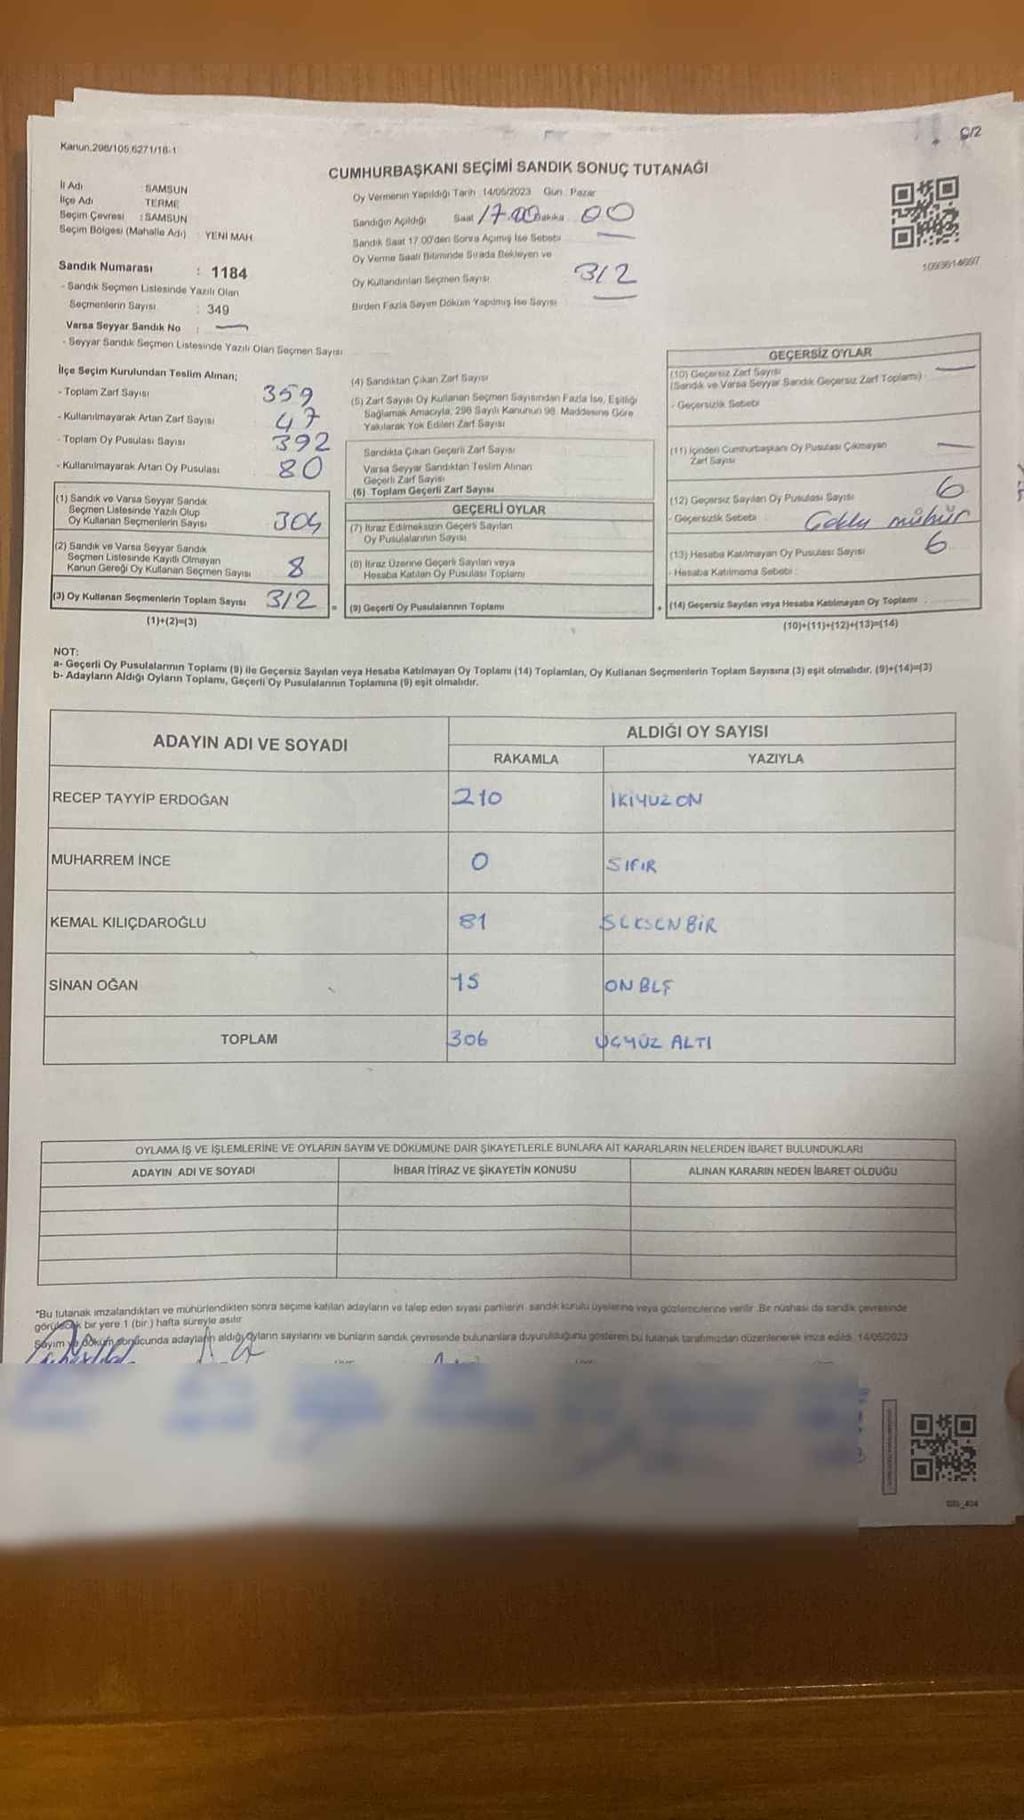 Kanun.298/105,6271/16-1
Ç/2
CUMHURBAŞKANI SEÇİMİ SANDIK SONUÇ TUTANAĞI
İl Adı : SAMSUN
İlçe Adı : TERME
Seçim Çevresi : SAMSUN
Seçim Bölgesi (Mahalle Adı) : YENİ MAH
Sandık Numarası : 1184
- Sandık Seçmen Listesinde Yazılı Olan
Seçmenlerin Sayısı : 349
Varsa Seyyar Sandık No :
- Seyyar Sandık Seçmen Listesinde Yazılı Olan Seçmen Sayısı
Oy Vermenin Yapıldığı Tarih :14/05/2023 Gün : Pazar
Sandığın Açıldığı Saat 17.00 Dakika 00
Sandık Saat 17.00'den Sonra Açılmış İse Sebebi
Oy Verme Saati Bitiminde Sırada Bekleyen ve
Oy Kullandırılan Seçmen Sayısı 312
Birden Fazla Sayım Döküm Yapılmış İse Sayısı
İlçe Seçim Kurulundan Teslim Alınan;
- Toplam Zarf Sayısı 359
- Kullanılmayarak Artan Zarf Sayısı 47
- Toplam Oy Pusulası Sayısı 392
- Kullanılmayarak Artan Oy Pusulası 80
(1) Sandık ve Varsa Seyyar Sandık
Seçmen Listesinde Yazılı Olup
Oy Kullanan Seçmenlerin Sayısı 304
(2) Sandık ve Varsa Seyyar Sandık
Seçmen Listesinde Kayıtlı Olmayan
Kanun Gereği Oy Kullanan Seçmen Sayısı 8
(3) Oy Kullanan Seçmenlerin Toplam Sayısı 312
(1)+(2)=(3)
(4) Sandıktan Çıkan Zarf Sayısı
(5) Zarf Sayısı Oy Kullanan Seçmen Sayısından Fazla İse, Eşitliği
Sağlamak Amacıyla, 298 Sayılı Kanunun 98. Maddesine Göre
Yakılarak Yok Edilen Zarf Sayısı
Sandıkta Çıkan Geçerli Zarf Sayısı
Varsa Seyyar Sandıktan Teslim Alınan
Geçerli Zarf Sayısı
(6) Toplam Geçerli Zarf Sayısı
GEÇERLİ OYLAR
(7) İtiraz Edilmeksizin Geçerli Sayılan
Oy Pusulalarının Sayısı
(8) İtiraz Üzerine Geçerli Sayılan veya
Hesaba Katılan Oy Pusulası Toplamı
(9) Geçerli Oy Pusulalarının Toplamı
GEÇERSİZ OYLAR
(10) Geçersiz Zarf Sayısı
(Sandık ve Varsa Seyyar Sandık Geçersiz Zarf Toplamı)
- Geçersizlik Sebebi
(11) İçinden Cumhurbaşkanı Oy Pusulası Çıkmayan
Zarf Sayısı
(12) Geçersiz Sayılan Oy Pusulası Sayısı 6
- Geçersizlik Sebebi mühür
(13) Hesaba Katılmayan Oy Pusulası Sayısı 6
- Hesaba Katılmama Sebebi :
(14) Geçersiz Sayılan veya Hesaba Katılmayan Oy Toplamı
(10)+(11)+(12)+(13)=(14)
NOT:
a- Geçerli Oy Pusulalarının Toplamı (9) ile Geçersiz Sayılan veya Hesaba Katılmayan Oy Toplamı (14) Toplamları, Oy Kullanan Seçmenlerin Toplam Sayısına (3) eşit olmalıdır. (9)+(14)=(3)
b- Adayların Aldığı Oyların Toplamı, Geçerli Oy Pusulalarının Toplamına (9) eşit olmalıdır.
ADAYIN ADI VE SOYADI
ALDIĞI OY SAYISI
RAKAMLA YAZIYLA
RECEP TAYYİP ERDOĞAN 210 İKİYUZ ON
MUHARREM İNCE 0 SIFIR
KEMAL KILIÇDAROĞLU 81 SEKSEN BİR
SİNAN OĞAN 15 ON BEŞ
TOPLAM 306 ÜÇYÜZ ALTI
OYLAMA İŞ VE İŞLEMLERİNE VE OYLARIN SAYIM VE DÖKÜMÜNE DAİR ŞİKAYETLERLE BUNLARA AİT KARARLARIN NELERDEN İBARET BULUNDUKLARI
ADAYIN ADI VE SOYADI İHBAR İTİRAZ VE ŞİKAYETİN KONUSU ALINAN KARARIN NEDEN İBARET OLDUĞU
*Bu tutanak imzalandıktan ve mühürlendikten sonra seçime katılan adayların ve talep eden siyasi partilerin sandık kurulu üyelerine veya gözlemcilerine verilir. Bir nüshası da sandık çevresinde
görülecek bir yere 1 (bir) hafta süreyle asılır
Sayım ve döküm sonucunda adayların aldığı oyların sayılarını ve bunların sandık çevresinde bulunanlara duyurulduğunu gösteren bu tutanak tarafımızdan düzenlenerek imza edildi. 14/05/2023